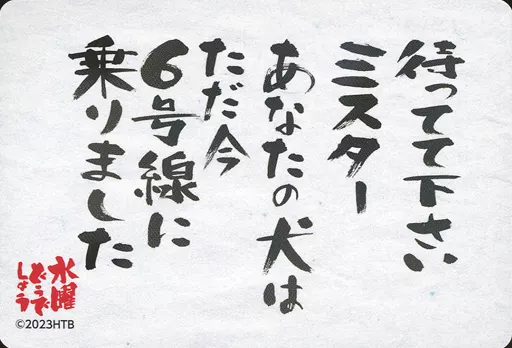 待ってて下さい
ミスター
あなたの犬は
ただ今
6号線に
乗りました
水曜
どうで
しょう
©2023HTB